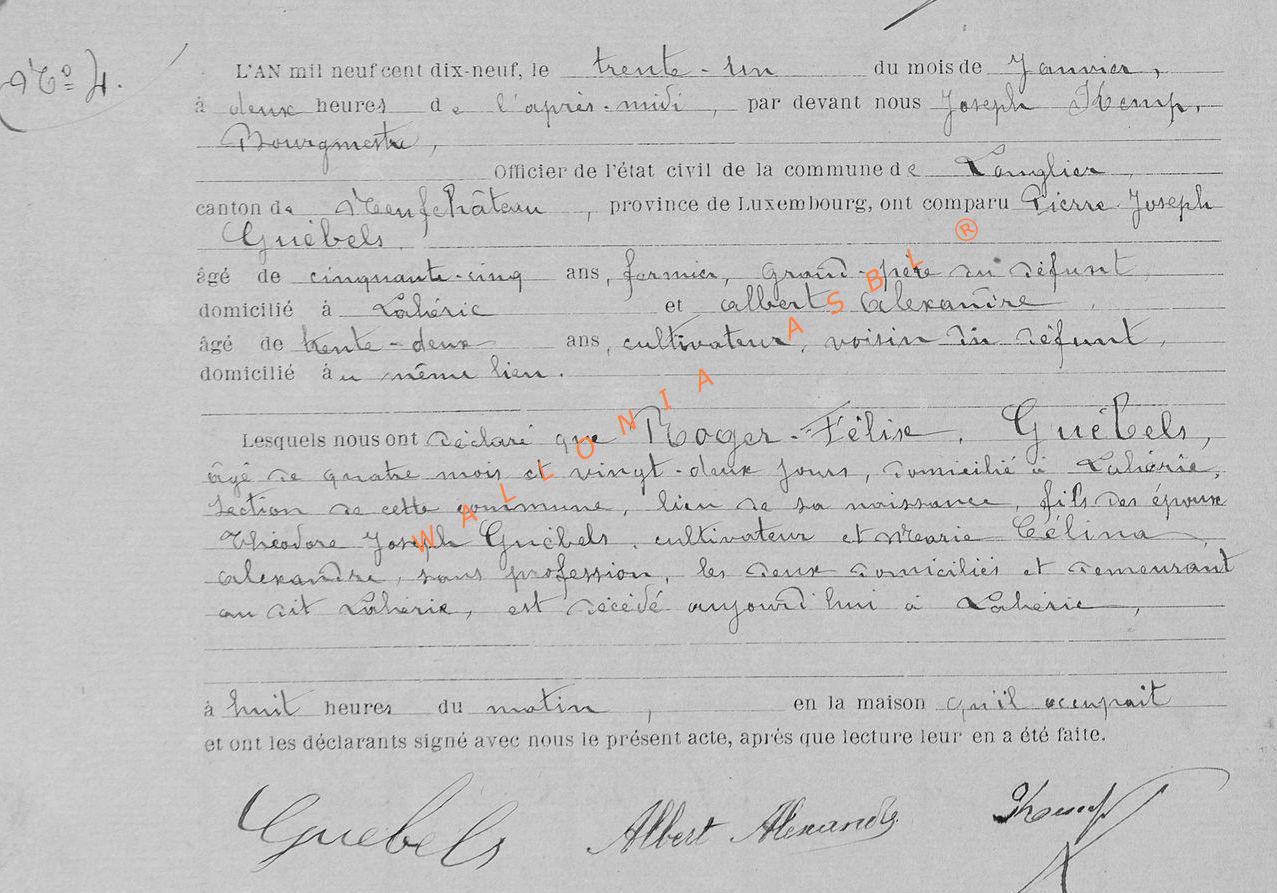 N° 4.
L'AN mil neuf cent dix-neuf, le trente-un du mois de Janvier,
à deux heures de l'après-midi, par devant nous Joseph Kemp,
Bourgmestre,
Officier de l'état civil de la commune de Longlier
canton de Neufchâteau, province de Luxembourg, ont comparu Pierre Joseph
Guebels
âgé de cinquante-cinq ans, fermier, grand-père du défunt
domicilié à Lahérie et Albert Alexandre
âgé de trente-deux ans, cultivateur, voisin du défunt,
domicilié au même lieu.
Lesquels nous ont déclaré que Roger-Félix, Guébels,
âgé de quatre mois et vingt-deux jours, domicilié à Lahérie,
section de cette commune, lieu de sa naissance, fils des époux
Théodore Joseph Guébels, cultivateur et Marie Célina
Alexandre, sans profession, les deux domiciliés et demeurant
au dit Lahérie, est décédé aujourd'hui à Lahérie,
à huit heures du matin, en la maison qu'il occupait
et ont les déclarants signé avec nous le présent acte, après que lecture leur en a été faite.
Guebels Albert Alexandre JKemp
WALLONIA ASBL ®